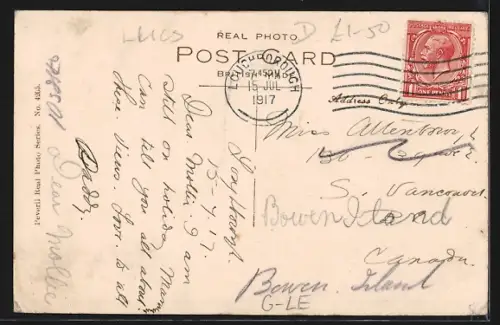 LEICS
D £1-50
REAL PHOTO
POST CARD
BRITISH MADE
LOUGHBOROUGH
7.45 PM
15 JUL
1917
Address Only
Peveril Real Photo Series. No.
Dear Mollie
Loughborough
15-7-17
Dear Mollie, I am
still on holiday. Mam
can tell you all about
these views. Love to all
Daddy
Miss Attenborough
S. Vancouver
Bowen Island
Canada
Bowen Island
G-LE